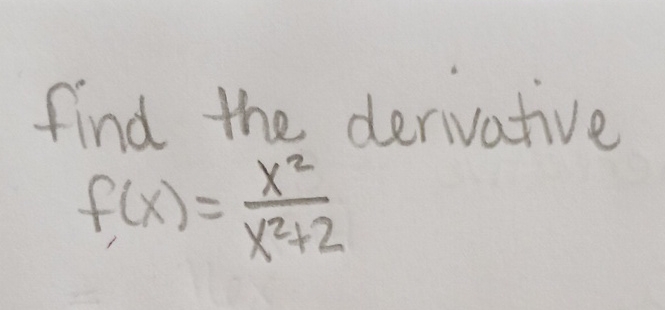 find the derivative
f(x) = x²/(x²+2)